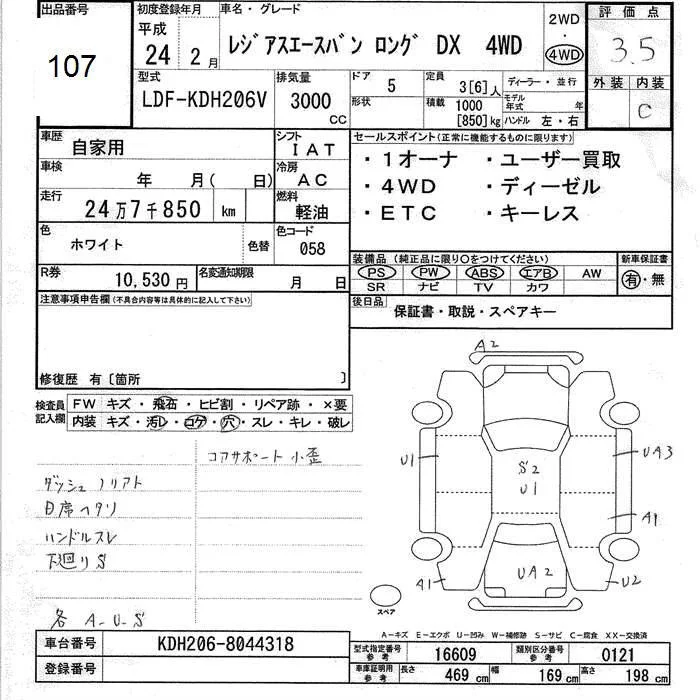 出品番号
107
初度登録年月
平成
24 2 月
車名・グレード
レジアスエースバン ロング DX 4WD
2WD
・
4WD
評価点
3.5
外装 内装
C
型式
LDF-KDH206V
排気量
3000
CC
ドア
5
形状
定員
3[6]人
積載
1000
[850]kg
ディーラー・並行
モデル年式 年
ハンドル 左・右
車歴
自家用
シフト
IAT
車検
年 月( 日)
冷房
AC
走行
24万7千850 km
燃料
軽油
色
ホワイト
色替
色コード
058
R券
10,530円
名変通知期限
月 日
セールスポイント(正常に機能するものに限ります)
・1オーナ ・ユーザー買取
・4WD ・ディーゼル
・ETC ・キーレス
装備品(純正品に限り〇をつけてください)
PS PW ABS エアB AW
SR ナビ TV カワ
新車保証書
有・無
後日品
保証書・取説・スペアキー
注意事項申告欄(不具合内容等は具体的に記入して下さい)
修復歴 有〔箇所 〕
検査員記入欄
FW キズ・飛石・ヒビ割・リペア跡・×要
内装 キズ・汚レ・コゲ・穴・スレ・キレ・破レ
コアサポート小歪
ダッシュノリアト
日席ヘタリ
ハンドルスレ
下廻りS
各 A-U-S
A2
U1
S2
U1
UA3
A1
A1
UA2
U2
スペア
A-キズ E-エクボ U-凹み W-補修跡 S-サビ C-腐食 XX-交換済
車台番号
KDH206-8044318
登録番号
型式指定番号
参考
16609
類別区分番号
参考
0121
車庫証明用
参考
長さ
469 cm
幅
169 cm
高さ
198 cm